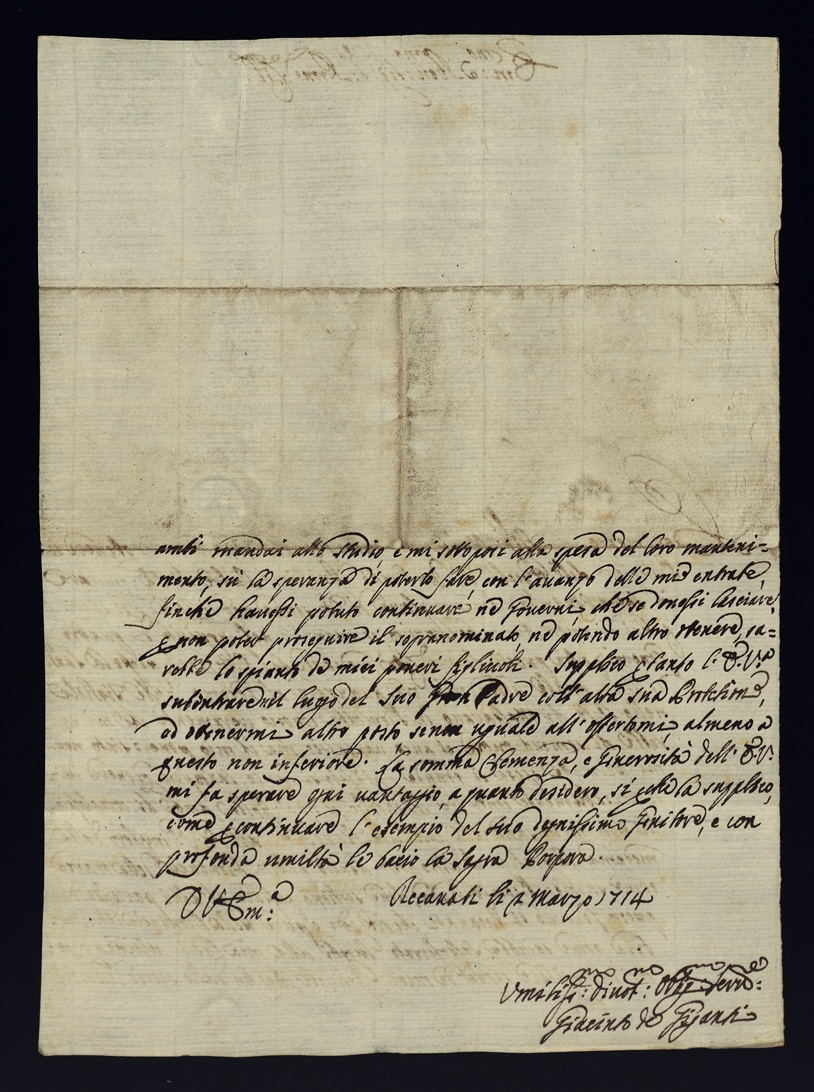 ambi mandai allo studio, e mi sottoposi alla spesa del loro manteni-
mento, sù la speranza di poterlo fare con l'avanzo delle mie entrate,
finche havessi potuto continuare nè Governi, che se dovessi lasciare,
e non poter proseguire il sopranominato, nè potendo altro ottenere, sa-
rebbe lo spianto de miei poveri figlivoli. Supplico ꝑ tanto l'E. V.ª
subintrare nel luogo del suo Gran Padre coll'alta sua Protezione,
ed ottenermi altro posto se non uguale all'offertomi, almeno a
questo non inferiore. La somma Clemenza, e Generosità dell'E. V.ª
mi fa sperare ogni vantaggio, a quanto desidero, si ꝑche la supplico,
come ꝑ continuare l'esempio del suo degnissimo Genitore, e con
profonda umiltà le bacio la Sagra Porpora.
D V Em:ª Recanati li 2 Marzo 1714
Vmiliss:mo Divot:mo Obblig:mo Serv:re
Giacinto de Giganti